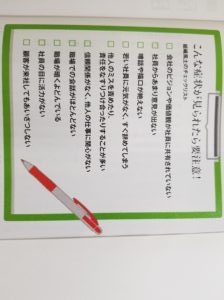 こんな症状が見られたら要注意!
組織風土のチェックリスト
□ 会社のビジョンや価値観が社員に共有されていない
□ 社員からあまり意見が出ない
□ 噂話や陰口が絶えない
□ 若い社員に元気がなく、すぐ辞めてしまう
□ 他人のミスを責めたり、
責任をなすりつけ合ったりすることが多い
□ 信頼関係がなく、他人の仕事に関心がない
□ 職場での会話がほとんどない
□ 職場が暗くよどんでいる
□ 社員の目に活力がない
□ 顧客が来社してもあいさつしない